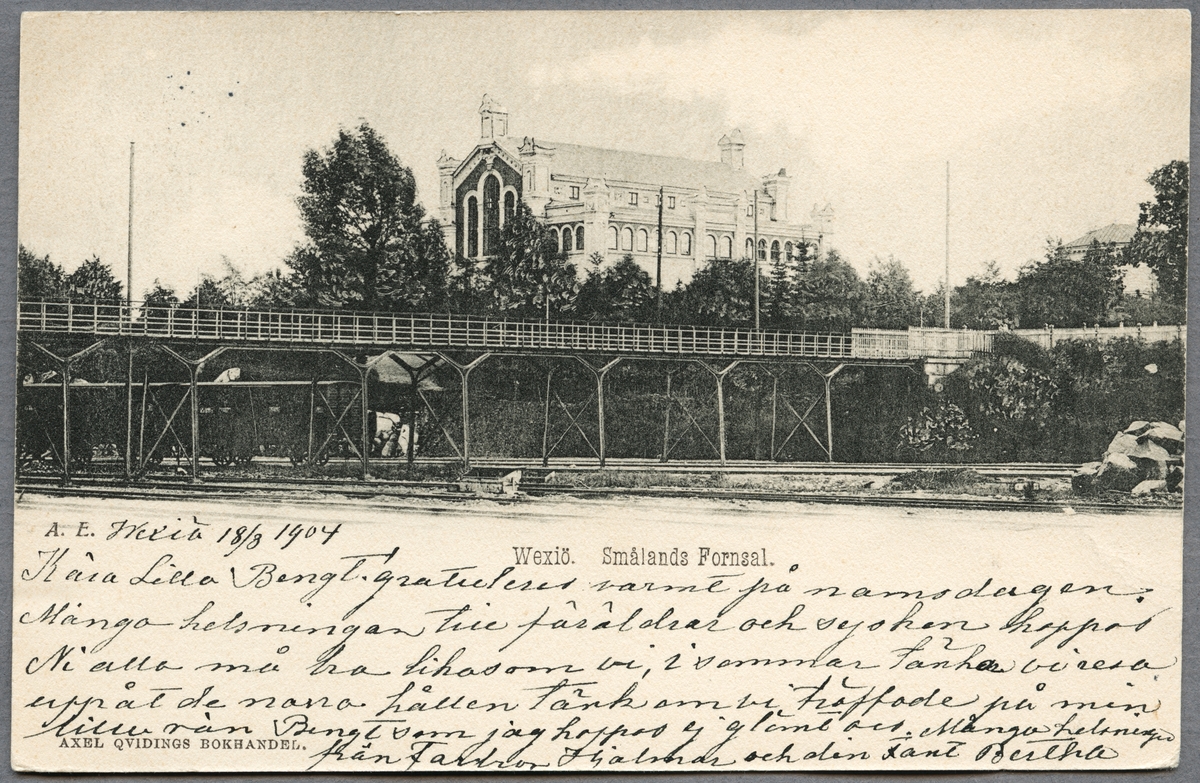 A. E. Wexiö 18/3 1904
Wexiö. Smålands Fornsal.
Kära Lilla Bengt. gratuleras varmt på namsdagen.
Många helsningar till föräldrar och sysken hoppas
Ni alla må bra likasom vi, i sommar tänka vi resa
uppåt de norra hållen tänk om vi träffade på min
lilla vän Bengt som jag hoppas ej glömt oss. Många helsningar
AXEL QVIDINGS BOKHANDEL.
från Farbror Hjalmar och den Tant Bertha